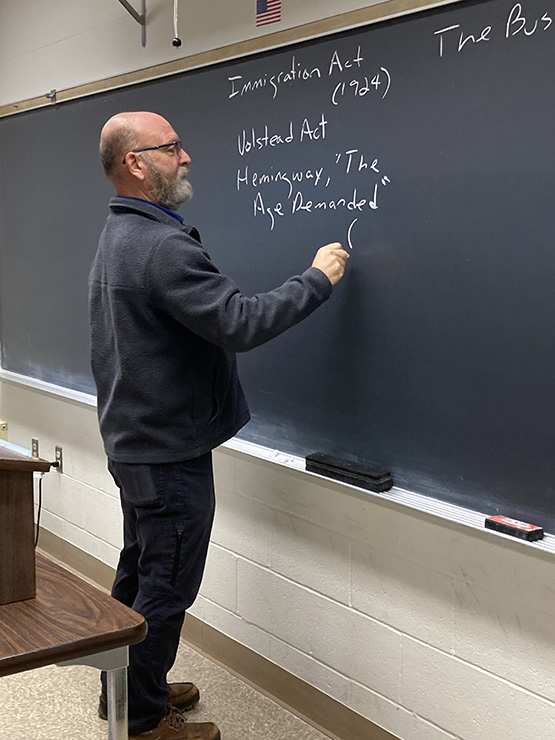 Immigration Act
(1924)
Volstead Act
Hemingway, "The
Age Demanded"
(
The Bus